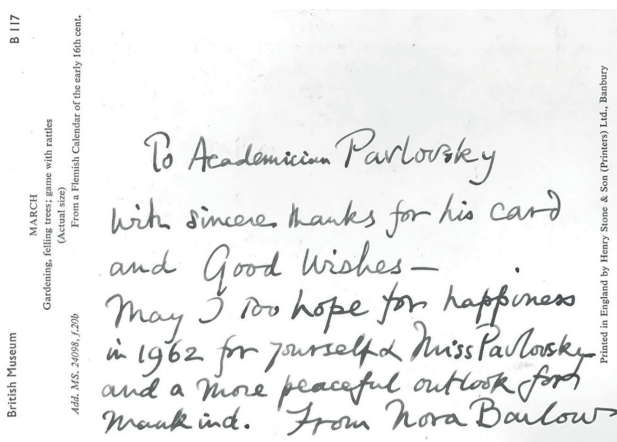 B 117
MARCH
Gardening, felling trees; game with rattles
(Actual size)
From a Flemish Calendar of the early 16th cent.
British Museum
Add. MS. 24098, f.20b
To Academician Pavlovsky
With sincere thanks for his card
and Good Wishes—
May I too hope for happiness
in 1962 for yourself & Miss Pavlovsky
and a more peaceful outlook for
Mankind. From Nora Barlow
Printed in England by Henry Stone & Son (Printers) Ltd., Banbury